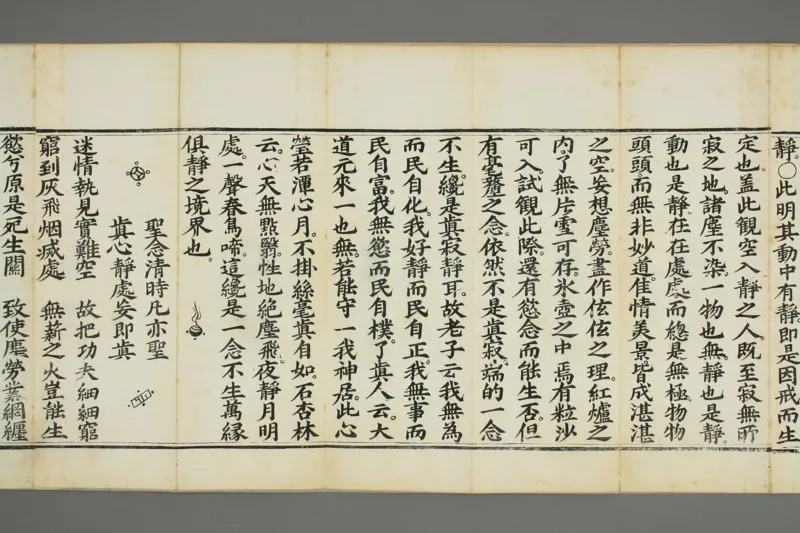 靜。○此明其動中有靜。即是因戒而生
定也。蓋此觀空入靜之人。既至寂無所
寂之地。諸塵不染。一物也無。靜也是靜。
動也是靜。在在處處而總是無極。物物
頭頭而無非妙道。佳情美景。皆成湛湛
之空。妄想塵勞。盡作伭伭之理。紅爐之
內。了無片雪可存。氷壺之中。焉有粒沙
可入。試觀此際。還有慾念而能生否。但
有毫釐之念。依然不是眞寂。端的一念
不生。纔是眞寂靜耳。故老子云。我無為
而民自化。我好靜而民自正。我無事而
民自富。我無慾而民自樸。了眞人云。大
道元來一也無。若能守一我神居。此心
瑩若潭心月。不掛絲毫眞自如。石杏林
云。心天無點翳。性地絶塵飛。夜靜月明
處。一聲春鳥啼。這纔是一念不生。萬緣
俱靜之境界也。
聖念清時凡亦聖
眞心靜處妄即眞
迷情執見實難空 故把功夫細細窮
窮到灰飛烟滅處 無薪之火豈能生
慾兮原是死生關 致使塵勞業網纏